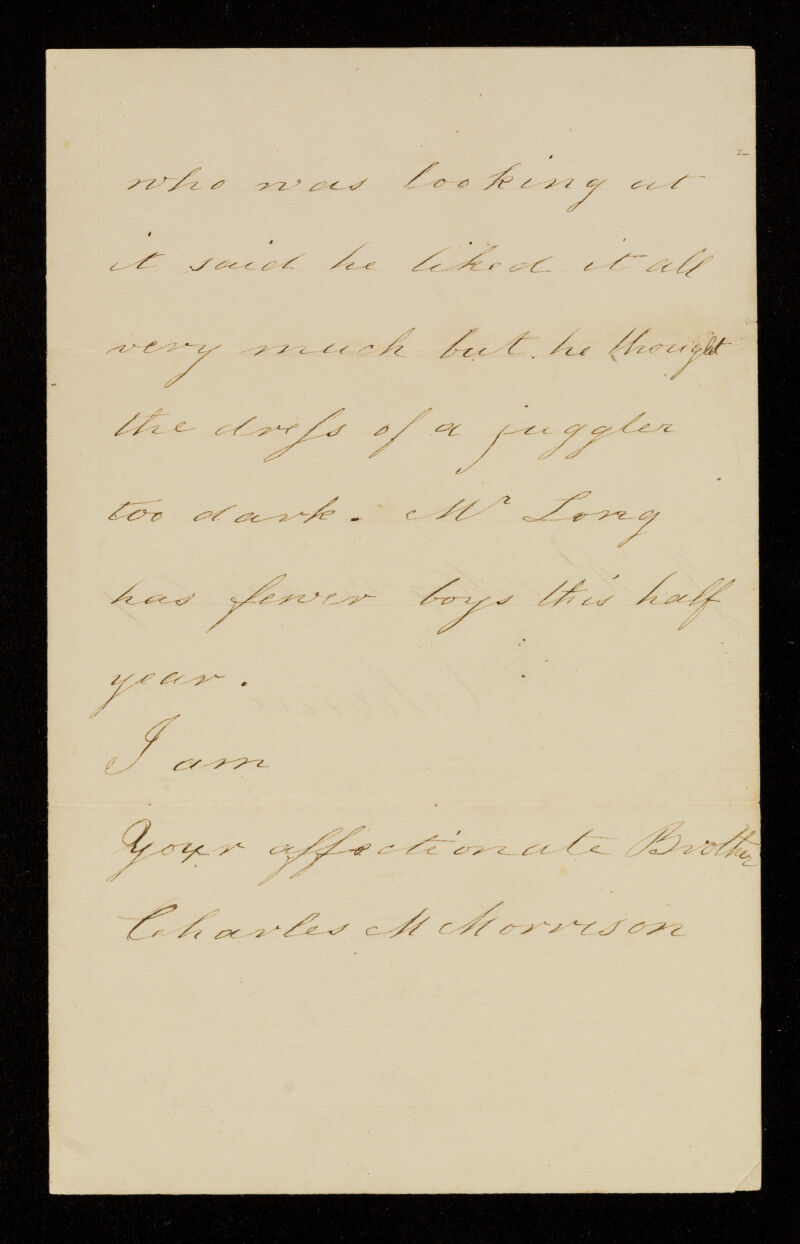 who was looking at
it said he liked it all
very much but he thought
the dreſs of a juggler
too dark. Mr Long
has fewer boys this half
year.
I am
Your affectionate Brother
Charles M Morrison